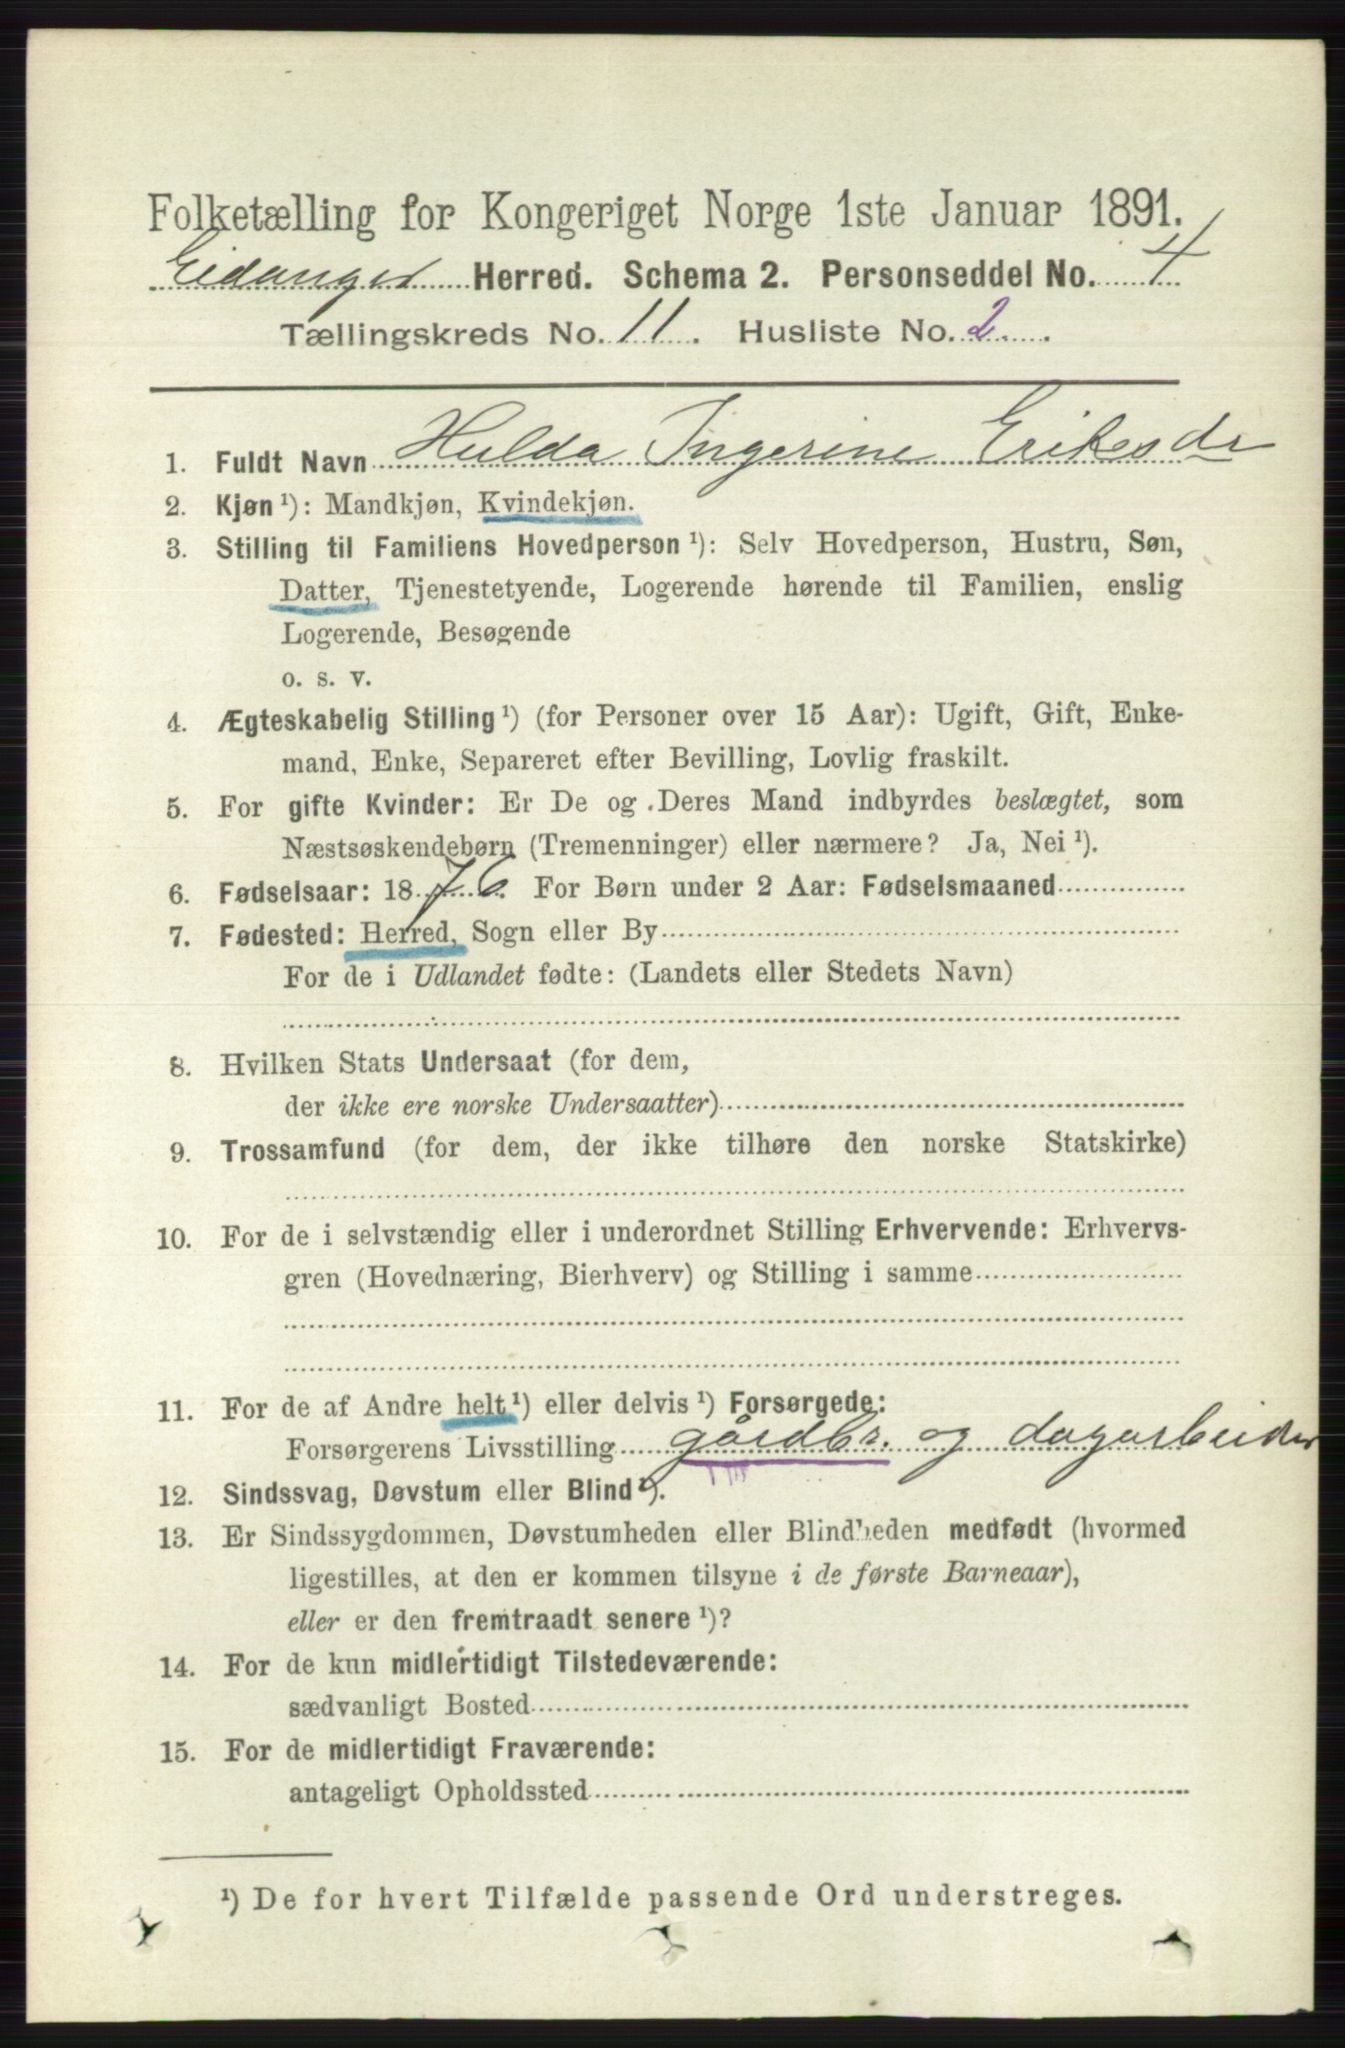 Folketælling for Kongeriget Norge 1ste Januar 1891.
Eidanger Herred. Schema 2. Personseddel No. 4
Tællingskreds No. 11. Husliste No. 2.
1. Fuldt Navn Hulda Ingerine Eriksdr
2. Kjøn ¹): Mandkjøn, Kvindekjøn.
3. Stilling til Familiens Hovedperson ¹): Selv Hovedperson, Hustru, Søn,
Datter, Tjenestetyende, Logerende hørende til Familien, enslig
Logerende, Besøgende
o. s. v.
4. Ægteskabelig Stilling ¹) (for Personer over 15 Aar): Ugift, Gift, Enke-
mand, Enke, Separeret efter Bevilling, Lovlig fraskilt.
5. For gifte Kvinder: Er De og Deres Mand indbyrdes beslægtet, som
Næstsøskendebørn (Tremenninger) eller nærmere? Ja, Nei ¹).
6. Fødselsaar: 1876. For Børn under 2 Aar: Fødselsmaaned
7. Fødested: Herred, Sogn eller By
For de i Udlandet fødte: (Landets eller Stedets Navn)
8. Hvilken Stats Undersaat (for dem,
der ikke ere norske Undersaatter)
9. Trossamfund (for dem, der ikke tilhøre den norske Statskirke)
10. For de i selvstændig eller i underordnet Stilling Erhvervende: Erhvervs-
gren (Hovednæring, Bierhverv) og Stilling i samme
11. For de af Andre helt ¹) eller delvis ¹) Forsørgede:
Forsørgerens Livsstilling gårdbr. og dagarbeider
12. Sindssvag, Døvstum eller Blind ¹).
13. Er Sindssygdommen, Døvstumheden eller Blindheden medfødt (hvormed
ligestilles, at den er kommen tilsyne i de første Barneaar),
eller er den fremtraadt senere ¹)?
14. For de kun midlertidigt Tilstedeværende:
sædvanligt Bosted
15. For de midlertidigt Fraværende:
antageligt Opholdssted
¹) De for hvert Tilfælde passende Ord understreges.